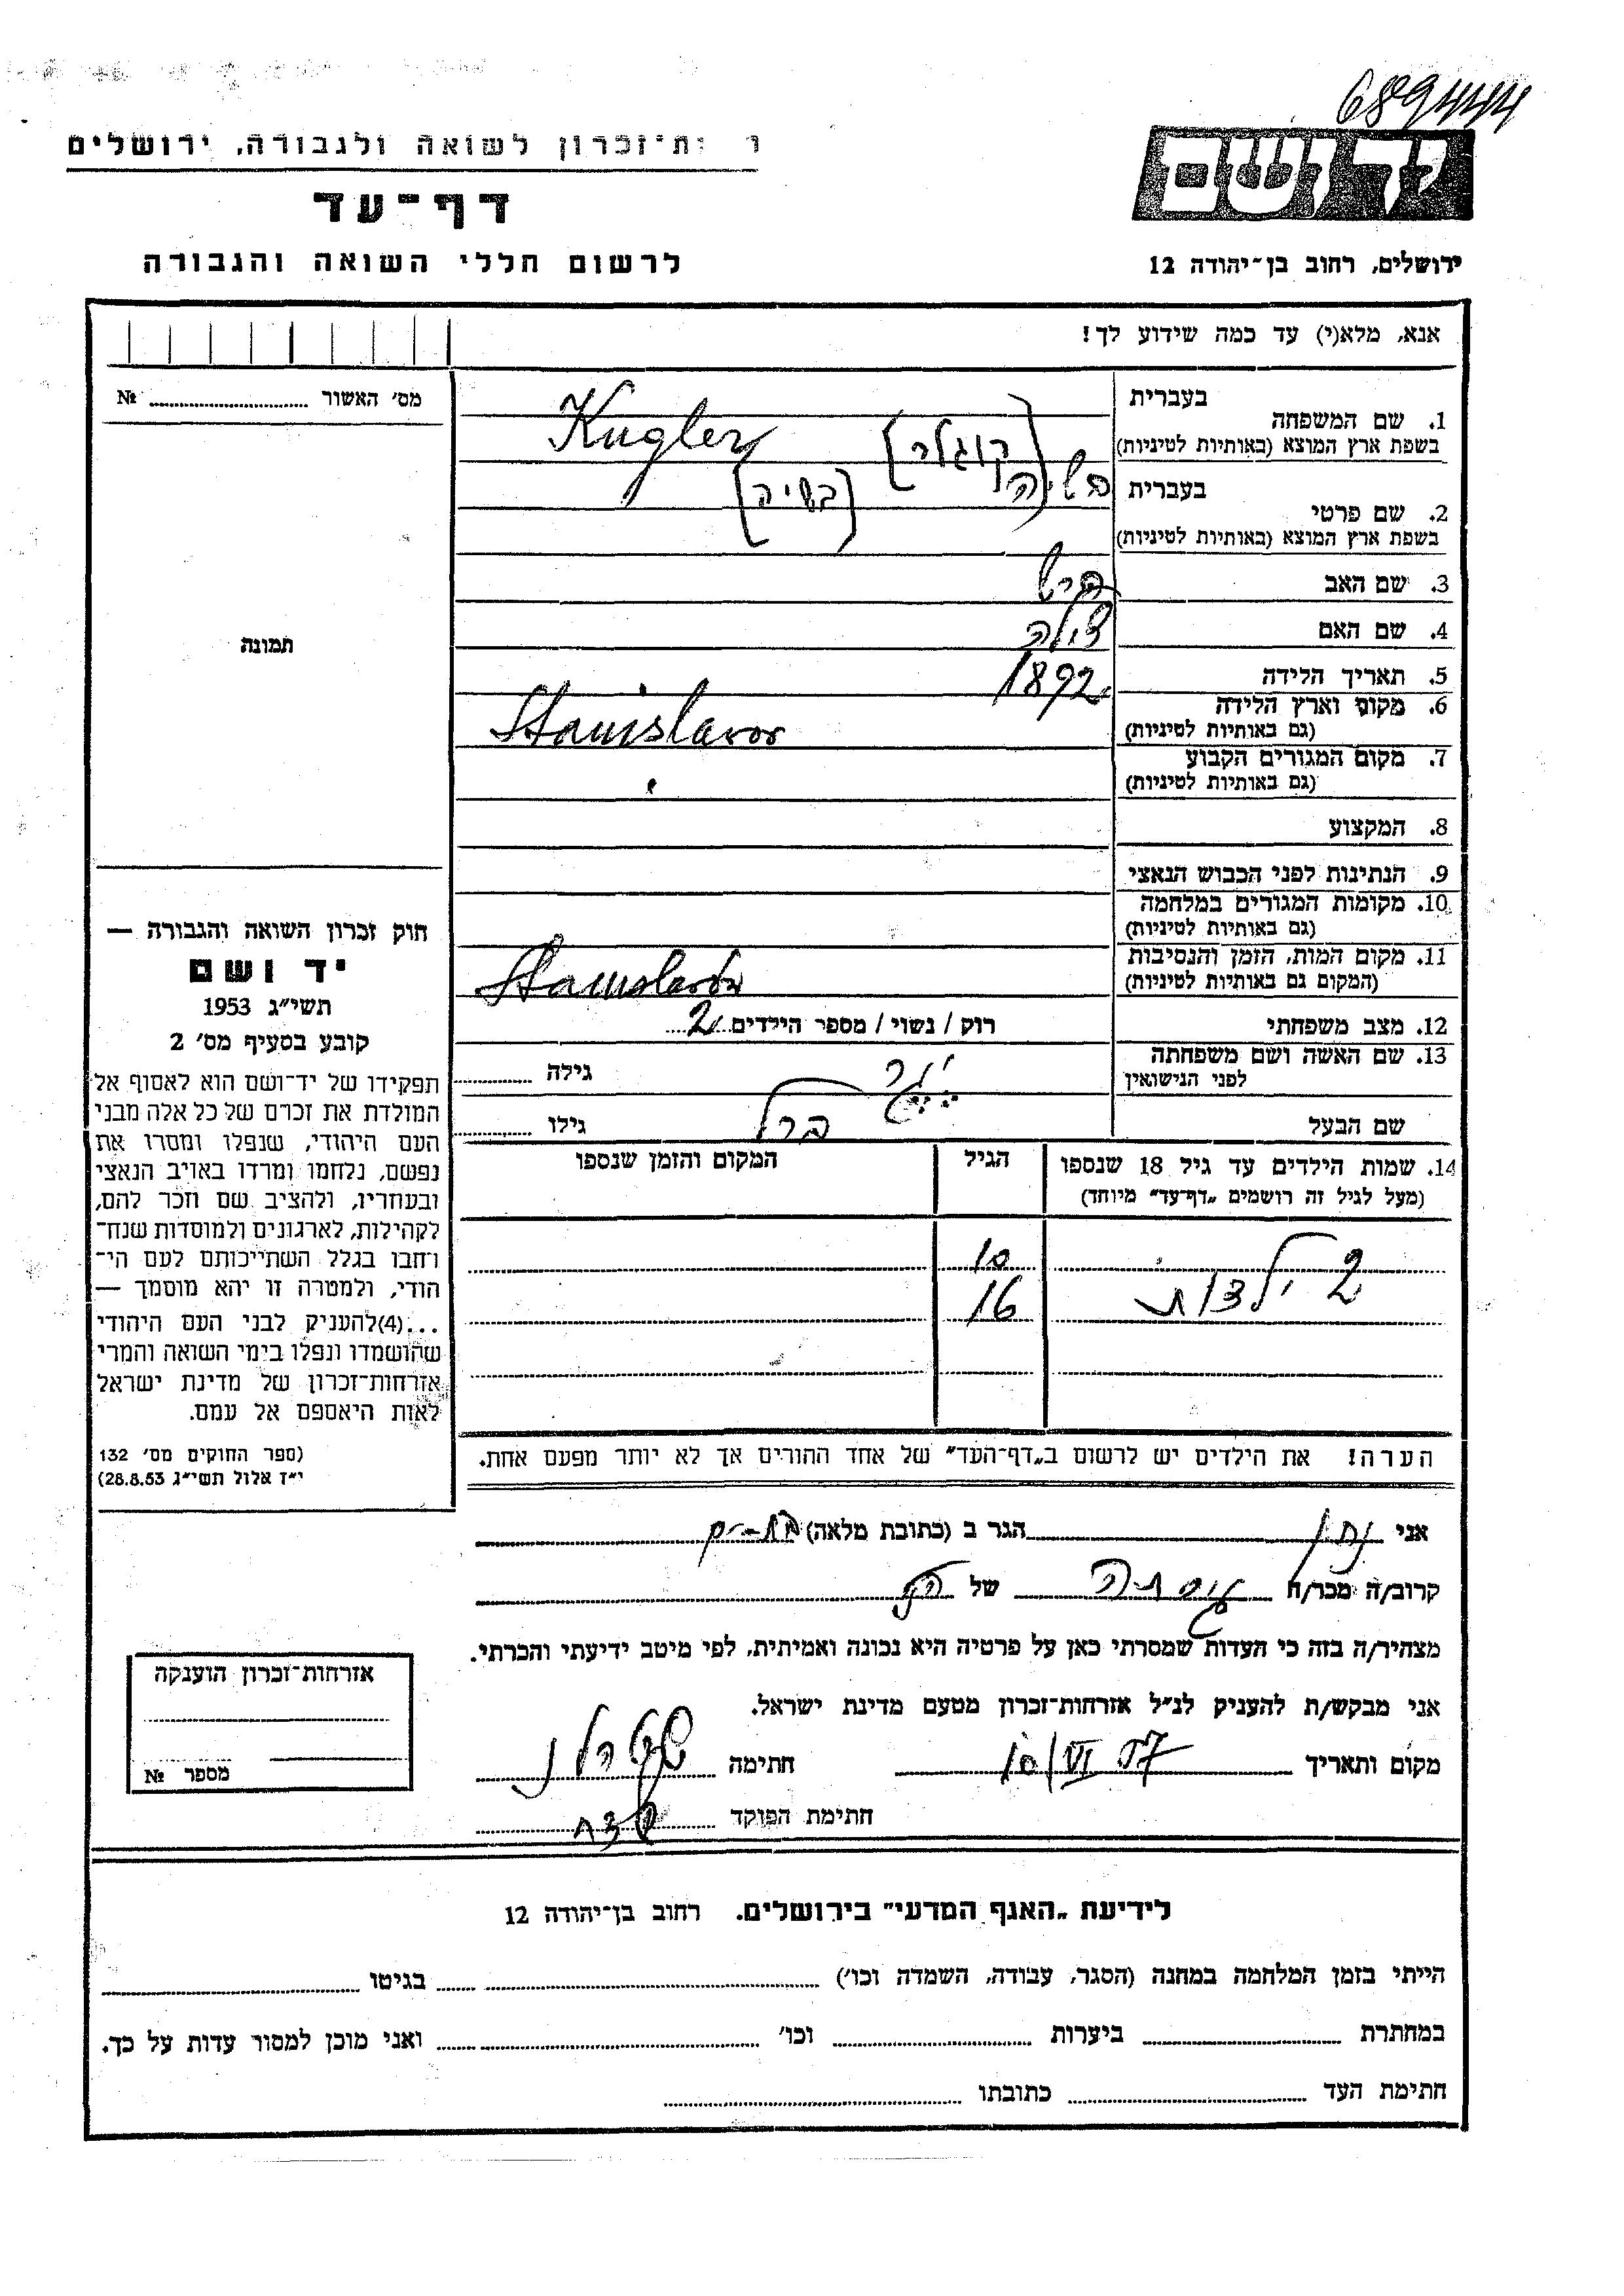 689444
ות־זכרון לשואה ולגבורה, ירושלים
דף־עד
לרשום חללי השואה והגבורה
יד ושם
ירושלים, רחוב בן־יהודה 12
אנא, מלא(י) עד כמה שידוע לך!
מס׳ האשור № 
תמונה
חוק זכרון השואה והגבורה —
יד ושם
תשי״ג 1953
קובע בסעיף מס׳ 2
תפקידו של יד־ושם הוא לאסוף אל
המולדת את זכרם של כל אלה מבני
העם היהודי, שנפלו ומסרו את
נפשם, נלחמו ומרדו באויב הנאצי
ובעוזריו, ולהציב שם וזכר להם,
לקהילות, לארגונים ולמוסדות שנח־
רחבו בגלל השתייכותם לעם הי־
הודי, ולמטרה זו יהא מוסמך —
...(4)להעניק לבני העם היהודי
שהושמדו ונפלו בימי השואה והמרי
אזרחות־זכרון של מדינת ישראל
לאות היאספם אל עמם.
(ספר החוקים מס׳ 132
י״ז אלול תשי״ג 28.8.53)
בעברית
1. שם המשפחה
בשפת ארץ המוצא (באותיות לטיניות)
Kugler [קוגלר]
בעברית בשיה
2. שם פרטי
בשפת ארץ המוצא (באותיות לטיניות)
[בשיה]
3. שם האב הרש
4. שם האם צילה
5. תאריך הלידה 1892
6. מקום וארץ הלידה
(גם באותיות לטיניות)
Stanislavov
7. מקום המגורים הקבוע
(גם באותיות לטיניות)
8. המקצוע
9. הנתינות לפני הכבוש הנאצי
10. מקומות המגורים במלחמה
(גם באותיות לטיניות)
11. מקום המות, הזמן והנסיבות
(המקום גם באותיות לטיניות)
Stanislavov
12. מצב משפחתי רוק / נשוי / מספר הילדים 2
13. שם האשה ושם משפחתה
לפני הנישואין
גילה
שם הבעל ברל גילו
14. שמות הילדים עד גיל 18 שנספו
(מעל לגיל זה רושמים „דף־עד״ מיוחד)
הגיל
המקום והזמן שנספו
2 ילדות
10
16
הערה! את הילדים יש לרשום ב„דף־העד״ של אחד ההורים אך לא יותר מפעם אחת.
אני נתן הגר ב (כתובת מלאה) בת-ים
קרוב/ה מכר/ה של
מצהיר/ה בזה כי העדות שמסרתי כאן על פרטיה היא נכונה ואמיתית, לפי מיטב ידיעתי והכרתי.
אני מבקש/ת להעניק לנ״ל אזרחות־זכרון מטעם מדינת ישראל.
מקום ותאריך 10/VI 57 חתימה
חתימת הפוקד
אזרחות־זכרון הוענקה
מספר №
לידיעת „האגף המדעי״ בירושלים. רחוב בן־יהודה 12
הייתי בזמן המלחמה במחנה (הסגר, עבודה, השמדה וכו׳) בגיטו
במחתרת ביערות וכו׳ ואני מוכן למסור עדות על כך.
חתימת העד כתובתו